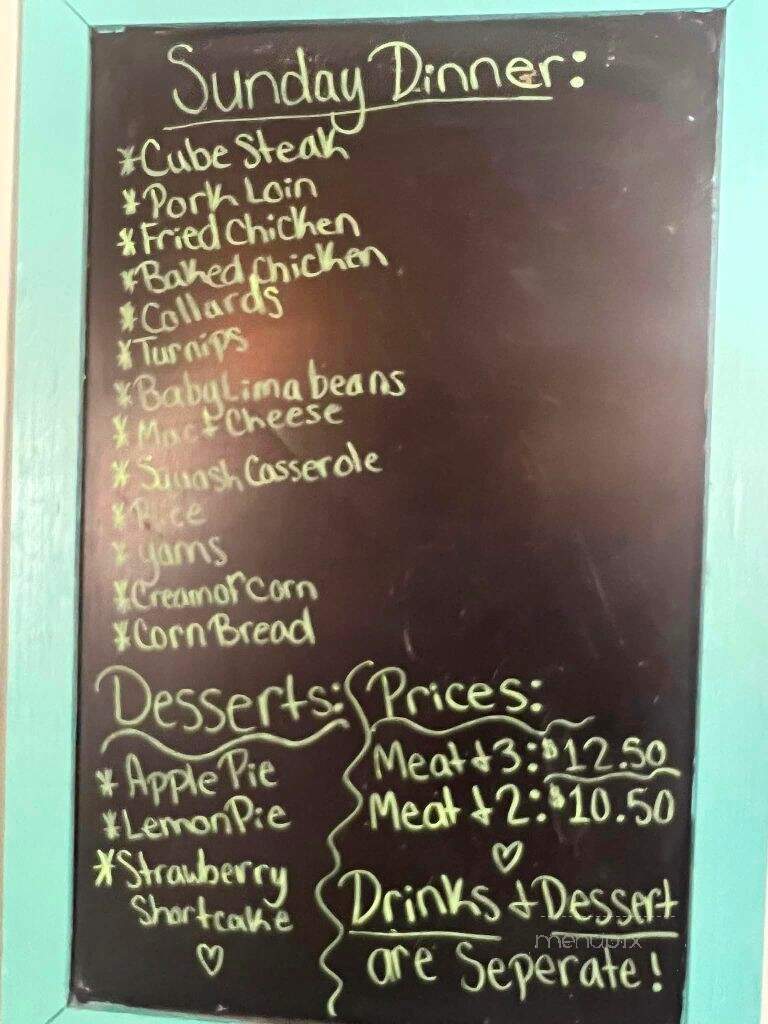 Sunday Dinner:
*Cube Steak
*Pork Loin
*Fried Chicken
*Baked Chicken
*Collards
*Turnips
*Baby Lima beans
*Mac & Cheese
*Squash Casserole
*Rice
*yams
*Cream of Corn
*Corn Bread
Desserts:
*Apple Pie
*Lemon Pie
*Strawberry
Shortcake
Prices:
Meat & 3: $12.50
Meat & 2: $10.50
Drinks & Dessert
are Seperate!
menupix